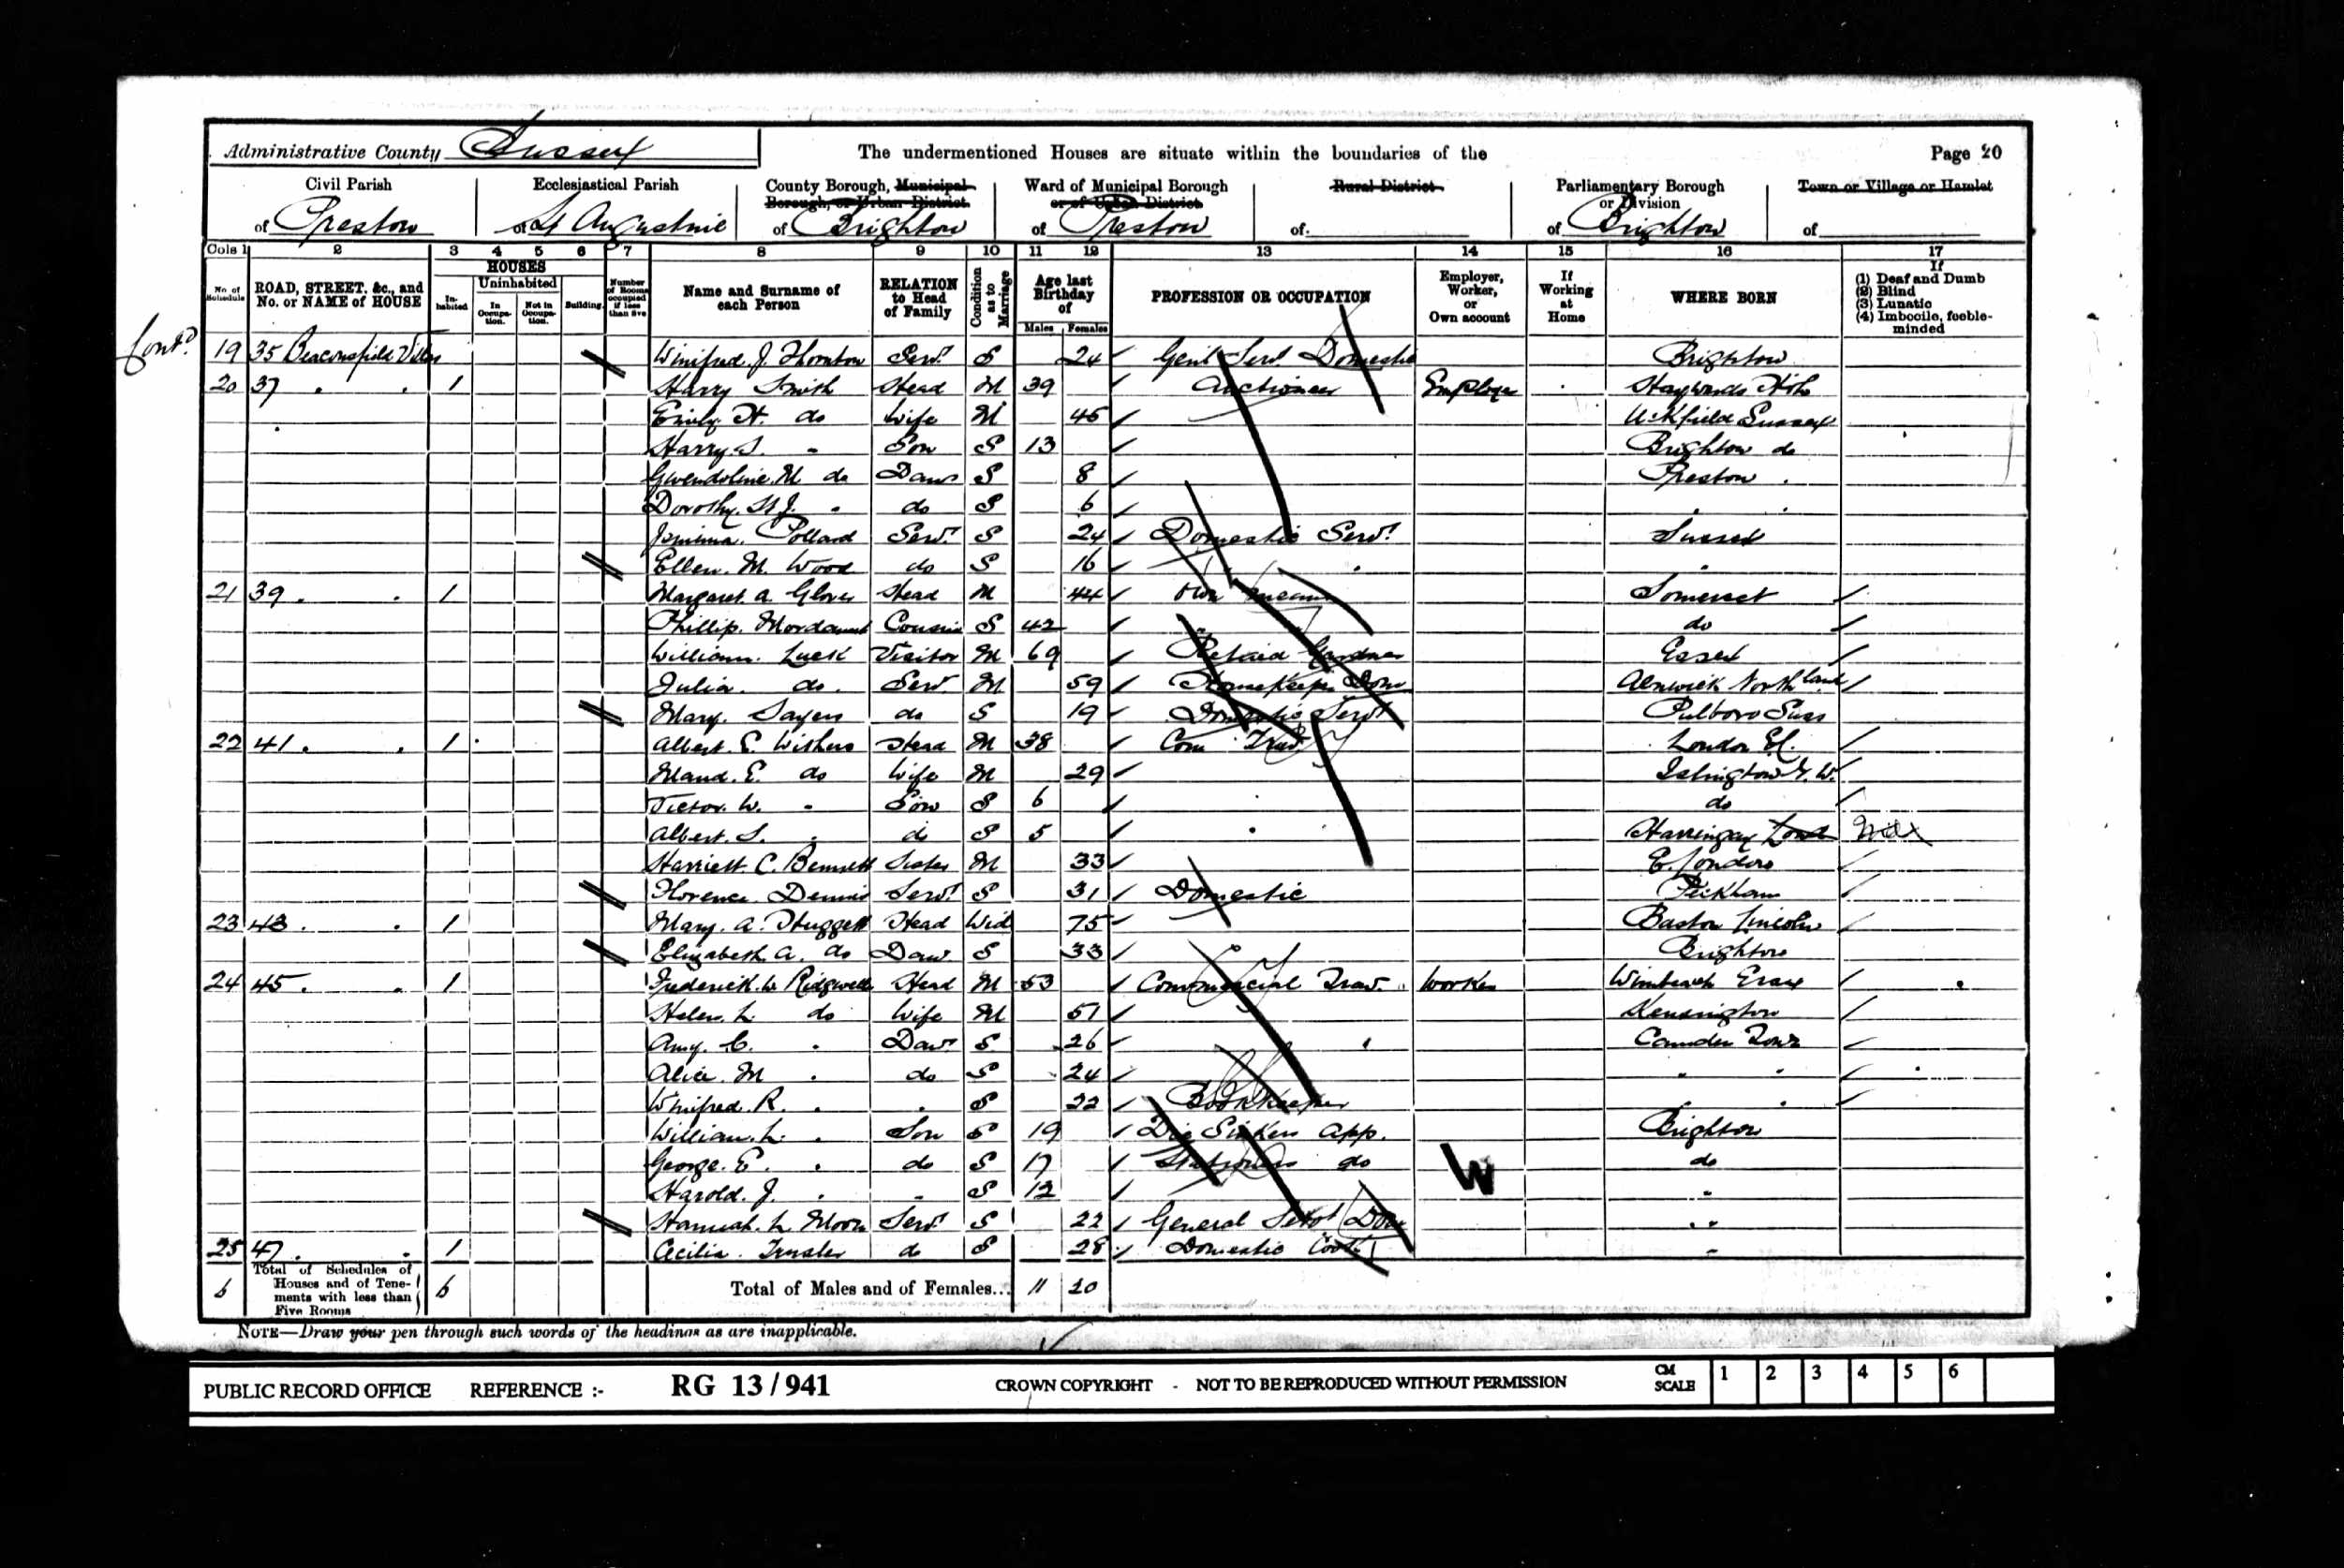 Administrative County Sussex The undermentioned Houses are situate within the boundaries of the Page 20
Civil Parish of Preston
Ecclesiastical Parish of St Augustine
County Borough, Municipal Borough, or Urban District of Brighton
Ward of Municipal Borough or of Urban District of Preston
Rural District of
Parliamentary Borough or Division of Brighton
Town or Village or Hamlet of
Cols 1 2 3 4 5 6 7 8 9 10 11 12 13 14 15 16 17
No. of Schedule
ROAD, STREET, &c., and No. or NAME of HOUSE
HOUSES
Inhabited
Uninhabited
In Occupation.
Not in Occupation.
Building.
Number of Rooms occupied if less than five
Name and Surname of each Person
RELATION to Head of Family
Condition as to Marriage
Age last Birthday of
Males Females
PROFESSION OR OCCUPATION
Employer, Worker, or Own account
If Working at Home
WHERE BORN
If
(1) Deaf and Dumb
(2) Blind
(3) Lunatic
(4) Imbecile, feeble-minded
Cont.d
19 35 Beaconsfield Villas Winifred J. Thornton Servt S 24 Genl Servt Domestic Brighton
20 37 " " 1 Harry Smith Head M 39 Auctioneer Employer Haywards Hth
Emily H. do Wife M 45 Uckfield Sussex
Harry S. " Son S 13 Brighton do
Gwendoline M do Daur S 8 Preston "
Dorothy St J. " do S 6 " "
Jemima Pollard Servt S 24 Domestic Servt Sussex
Ellen M. Wood do S 16 " " "
21 39 " " 1 Margaret A Glover Head M 44 Own means Somerset
Phillip Mordaunt Cousin S 42 do
William Luck Visitor M 69 Retired Gardner Essex
Julia do Serv M 59 Housekeeper Dom Alnwick Northland
Mary Sayers do S 19 Domestic Servt Pulboro Suss
22 41 " " 1 Albert E. Withers Head M 38 Com Trav London E.C.
Maud E. do Wife M 29 Islington N. W.
Victor W. " Son S 6 do
Albert S. " do S 5 Harringay Lond
Harriett C. Bennett Sister M 33 E. London
Florence Dennis Servt S 31 Domestic Peckham
23 43 " " 1 Mary A. Huggett Head Wid 75 Baston Lincoln
Elizabeth A. do Daur S 33 Brighton
24 45 " " 1 Frederick W Ridgwell Head M 53 Commercial Trav. Worker Essex
Helen L do Wife M 51 Kensington
Amy C. " Daur S 26 Camden Town
Alice M " do S 24 " "
Winifred R. " " S 22 Bookkeeper " "
William L. " Son S 19 Die Sinkers App. Brighton
George E. " do S 17 Stationers do W do
Harold J. " " S 12 "
Hannah L Moon Servt S 22 General Servt Dom "
25 47 " " 1 Cecilia Trusler do S 28 Domestic Cook "
6 Total of Schedules of Houses and of Tenements with less than Five Rooms 6 Total of Males and of Females... 11 20
NOTE—Draw your pen through such words of the headings as are inapplicable.
PUBLIC RECORD OFFICE REFERENCE :- RG 13/941 CROWN COPYRIGHT - NOT TO BE REPRODUCED WITHOUT PERMISSION CM SCALE 1 2 3 4 5 6